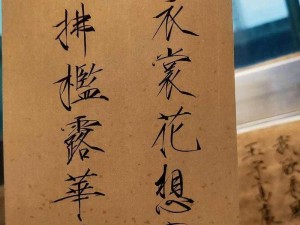 衣裳花想
拂檻露華